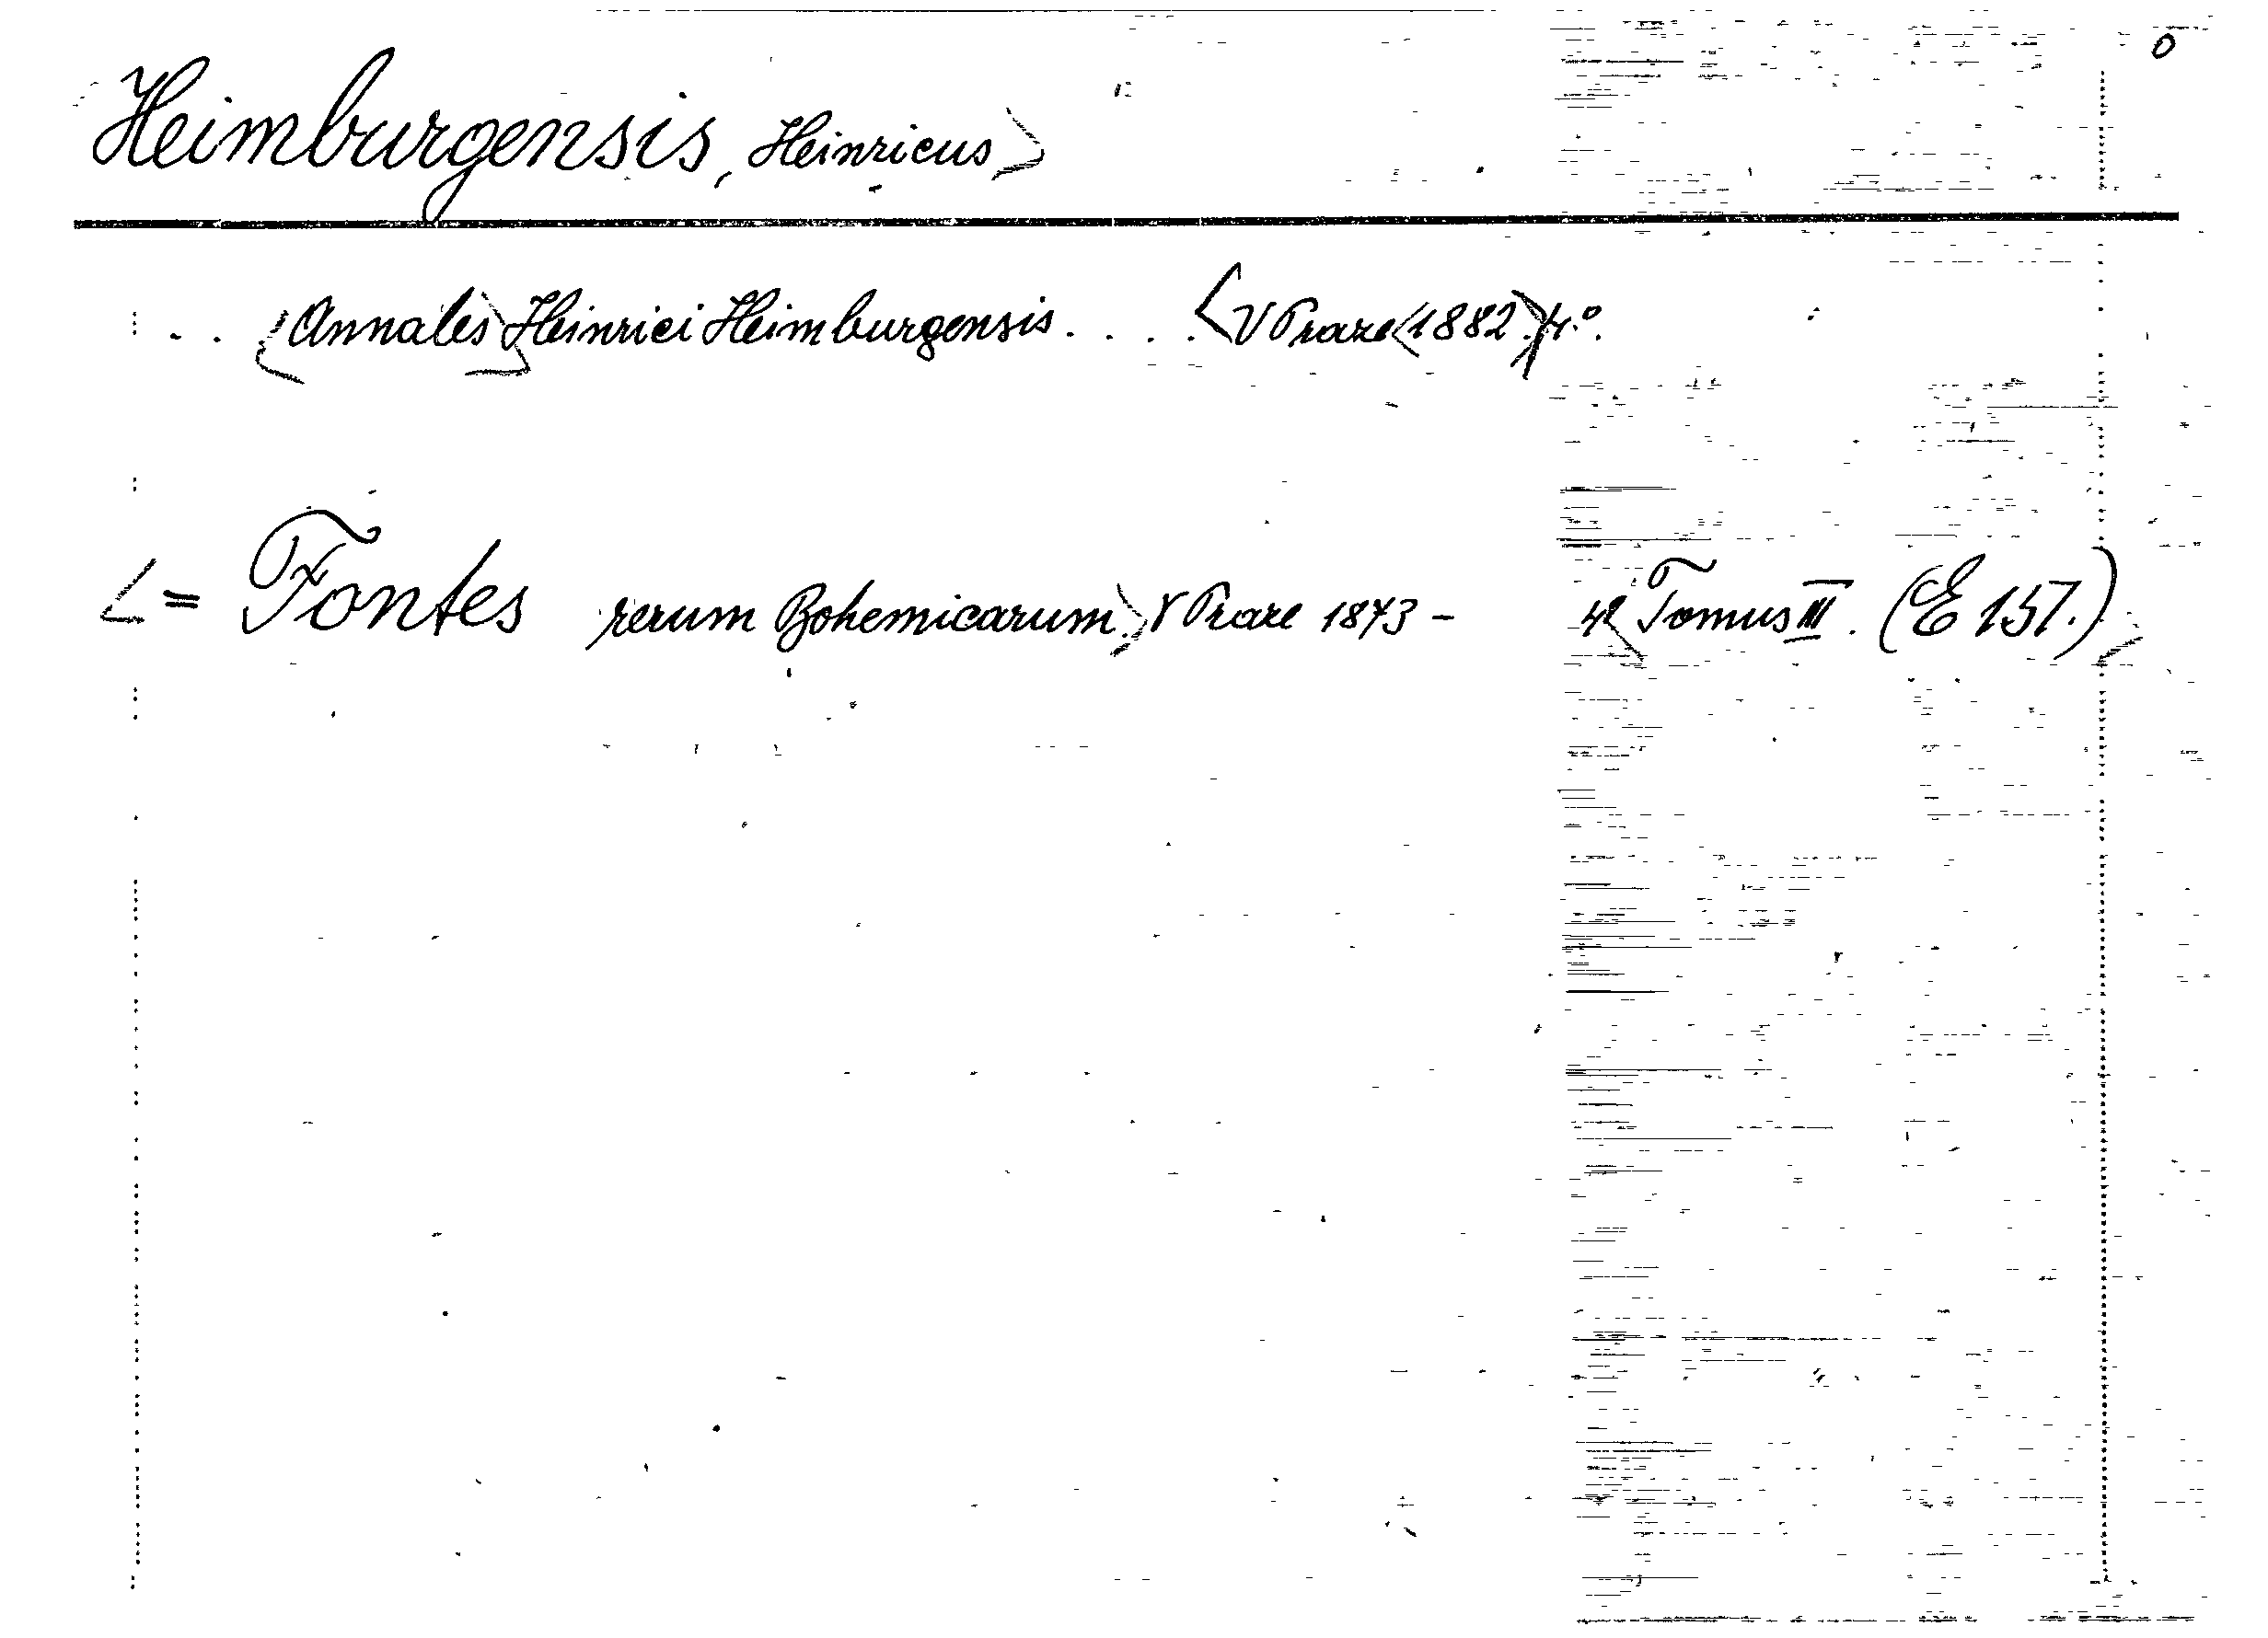 0
Heimburgensis, Heinricus>
. . <Annales> Heinrici Heimburgensis. . . . <V Praze <1882.> 4.°.
<= Fontes rerum Bohemicarum.> V Praze 1873 - 4° <Tomus III. (E 157.)>